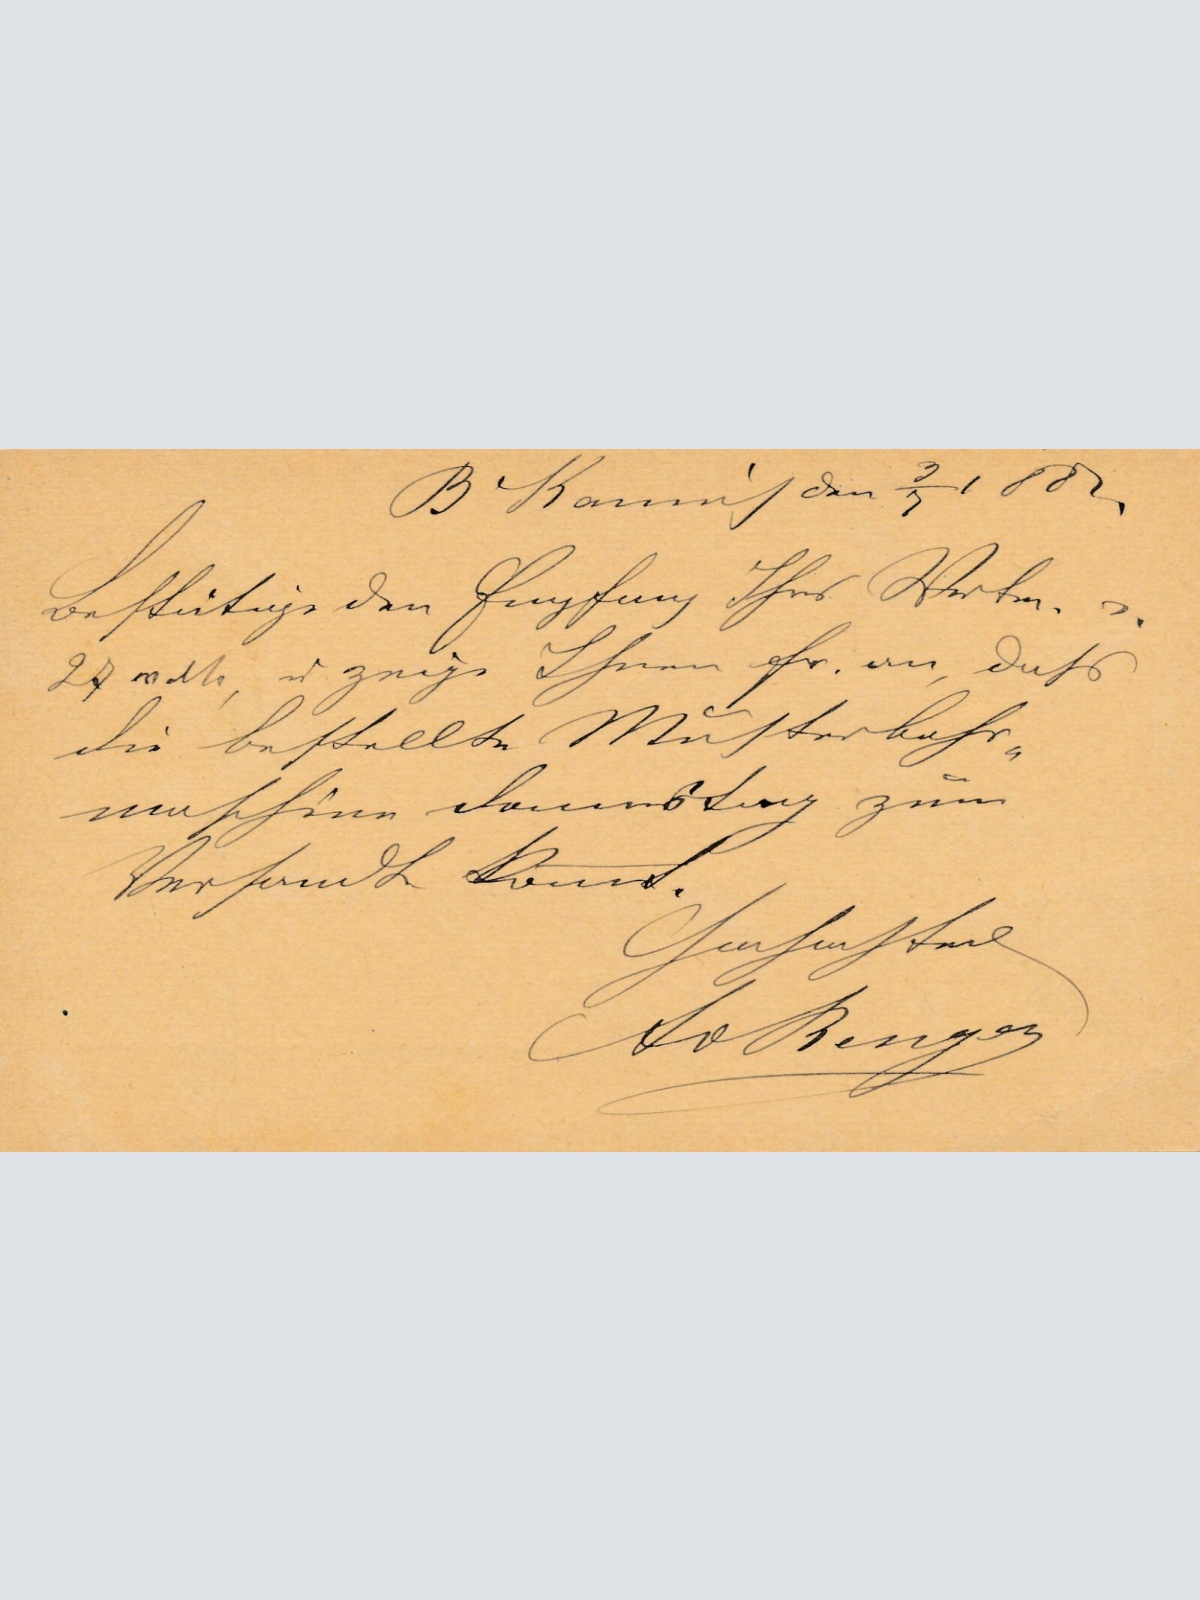 B Kamnitz den 3/7 1882.
Bestätige den Empfang Ihres Werten. v.
27 vdMs, u zeige Ihnen fr. an, dass
die bestellte Musterbohr„
maschine Donnerstag zum
Versandt kommt.
Hochachtend
Ad Renger